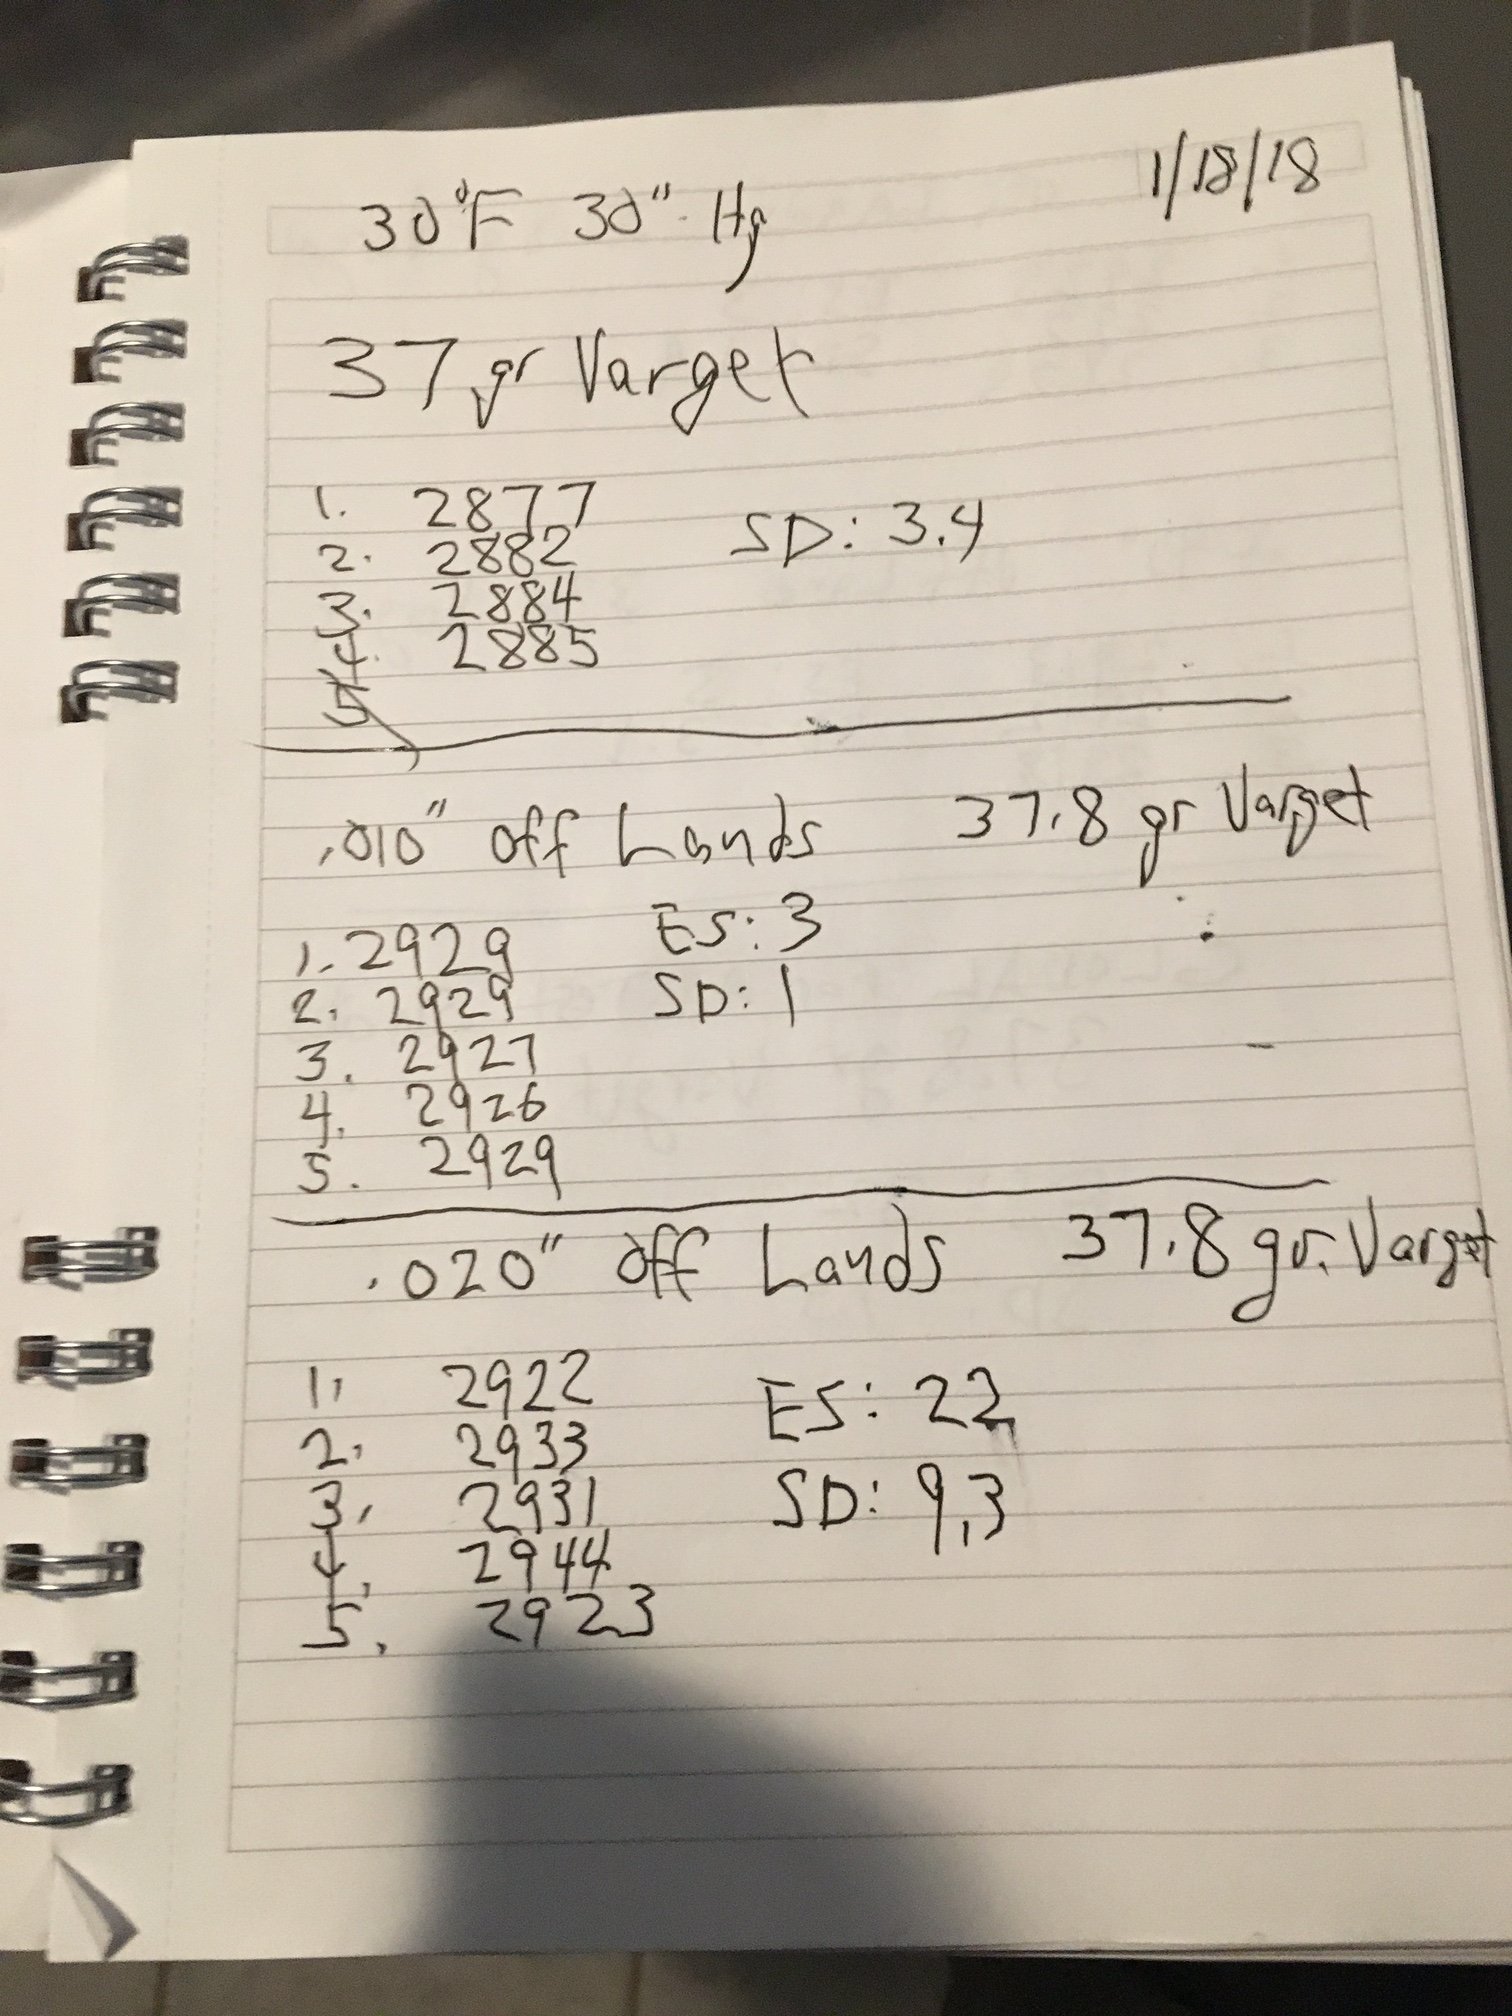 1/18/18
30°F 30" Hg
37 gr Varget
1. 2877
2. 2882 SD: 3.4
3. 2884
4. 2885
5.
.010" Off Lands 37.8 gr Varget
1. 2929 ES: 3
2. 2929 SD: 1
3. 2927
4. 2926
5. 2929
.020" Off Lands 37.8 gr. Varget
1. 2922 ES: 22
2. 2933
3. 2931 SD: 9.3
4. 2944
5. 2923